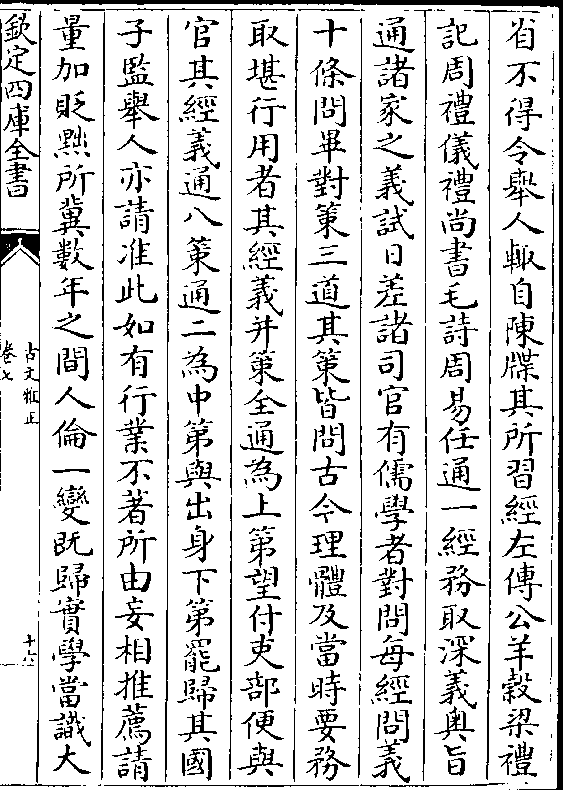 省不得令舉人輙自陳牒其所習經左傳公羊榖梁禮
記周禮儀禮尚書毛詩周易任通一經務取深義奥旨
通諸家之義試日差諸司官有儒學者對問每經問義
十條問畢對策三道其策皆問古今理體及當時要務
取堪行用者其經義并策全通為上第望付吏部便與
官其經義通八策通二為中第與出身下第罷歸其國
子監舉人亦請准此如有行業不著所由妄相推薦請
量加貶黜所冀數年之間人倫一變既歸實學當識大
欽定四庫全書
古文雅正
卷七
十六